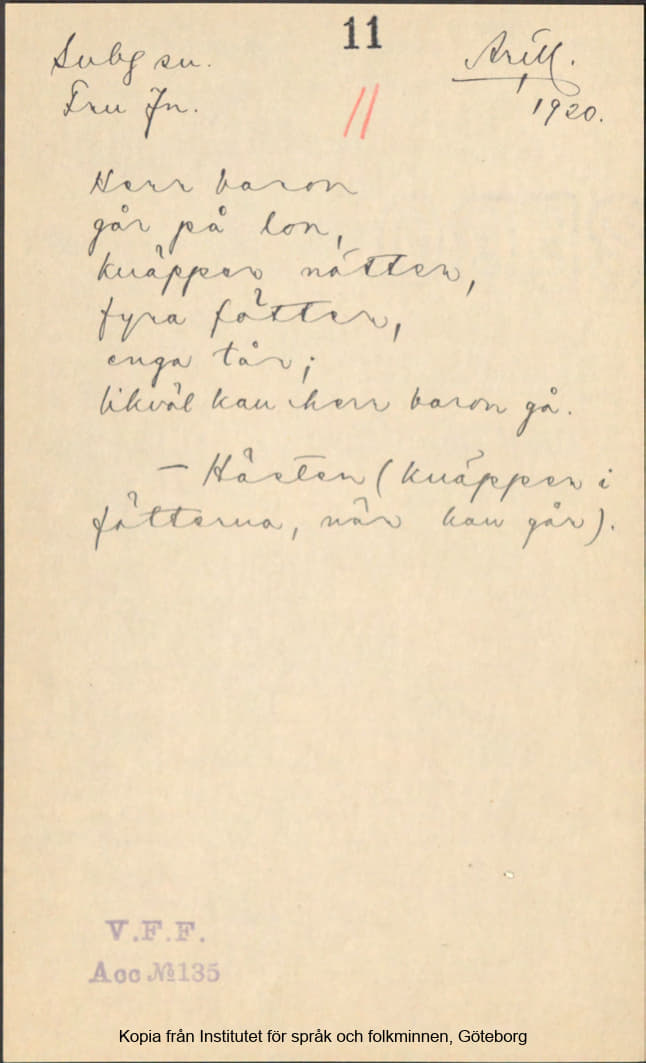 11
Arill.
1920.
Fru Jn.
11
Herr baron
går på lon,
knäpper nötter,
fyra fötter,
enga tår;
likväl kan herr baron gå.
— Hästen (knäpper i
fötterna, när han går).
V.F.F.
Acc № 135
Kopia från Institutet för språk och folkminnen, Göteborg